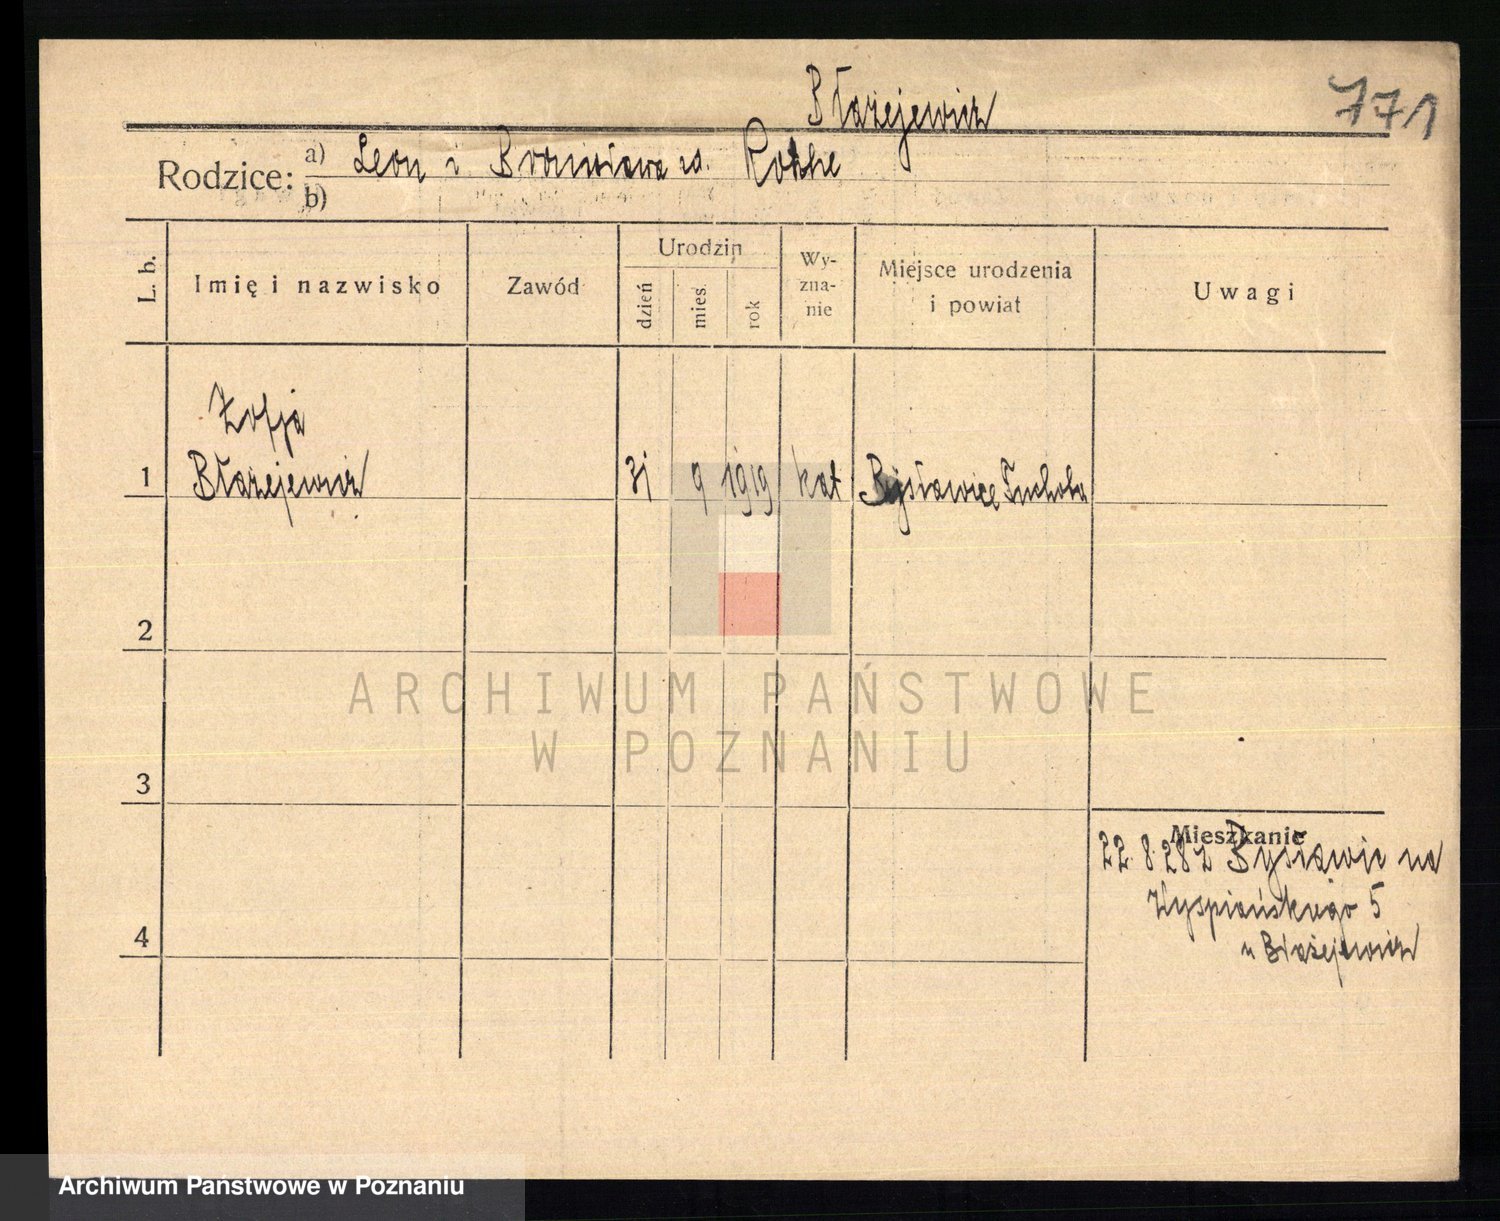 771
Błażejewicz
Rodzice: a) Leon i Bronisława zd. Rothe
b)
L. b.
Imię i nazwisko
Zawód
Urodzin
dzień
mies.
rok
Wy-
zna-
nie
Miejsce urodzenia
i powiat
Uwagi
Zofja
1 Błażejewicz 31 9 1919 kat Bysławice Tuchola
2
3
4
Mieszkanie
22.8.28 z Bysławic na
Wyspiańskiego 5
u Błażejewicz
ARCHIWUM PAŃSTWOWE
W POZNANIU
Archiwum Państwowe w Poznaniu